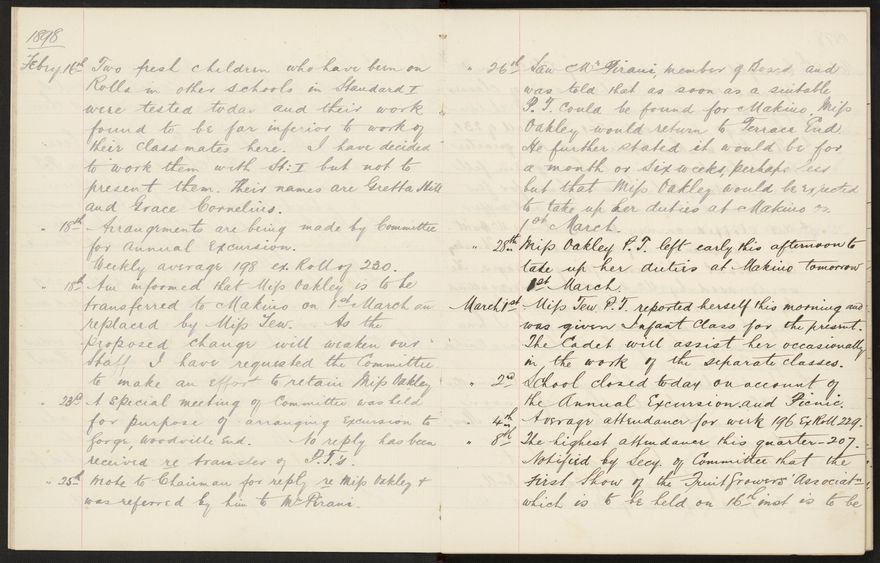 1898
Febry 16th Two fresh children who have been on
Rolls in other schools in Standard I
were tested today and their work
found to be far inferior to work of
their classmates here. I have decided
to work them with St: I but not to
present them. Their names are Gretta Hill
and Grace Cornelius.
" 18th Arrangements are being made by Committee
for Annual Excursion.
Weekly average 198 ex Roll of 220.
" 18th Am informed that Miss Oakley is to be
transferred to Makino on 1st March an
replaced by Miss Tew. As the
proposed change will weaken our
Staff I have requested the Committee
to make an effort to retain Miss Oakley
" 23rd A Special meeting of Committee was held
for purpose of arranging Excursion to
Gorge, Woodville End. No reply has been
received re transfer of P.T's.
" 25th Wrote to Chairman for reply re Miss Oakley +
was referred by him to Mr Pirani.
" 26th Saw Mr Pirani, member of Board and
was told that as soon as a suitable
P.T. could be found for Makino, Miss
Oakley would return to Terrace End
He further stated it would be for
a month or six weeks, perhaps less
but that Miss Oakley would be expected
to take up her duties at Makino on
1st March.
" 28th Miss Oakley P.T. left early this afternoon to
take up her duties at Makino tomorrow
1st March.
March 1st Miss Tew. P.T. reported herself this morning and
was given Infant Class for the present.
The Cadet will assist her occasionally
in the work of the separate classes.
" 2nd School closed today on account of
the Annual Excursion and Picnic.
" 4th Average attendance for week 196 Ex Roll 229.
" 8th The highest attendance this quarter - 207.
Notified by Secy. of Committee that the
First Show of the Fruit Growers' Associatn
which is to be held on 16th inst is to be